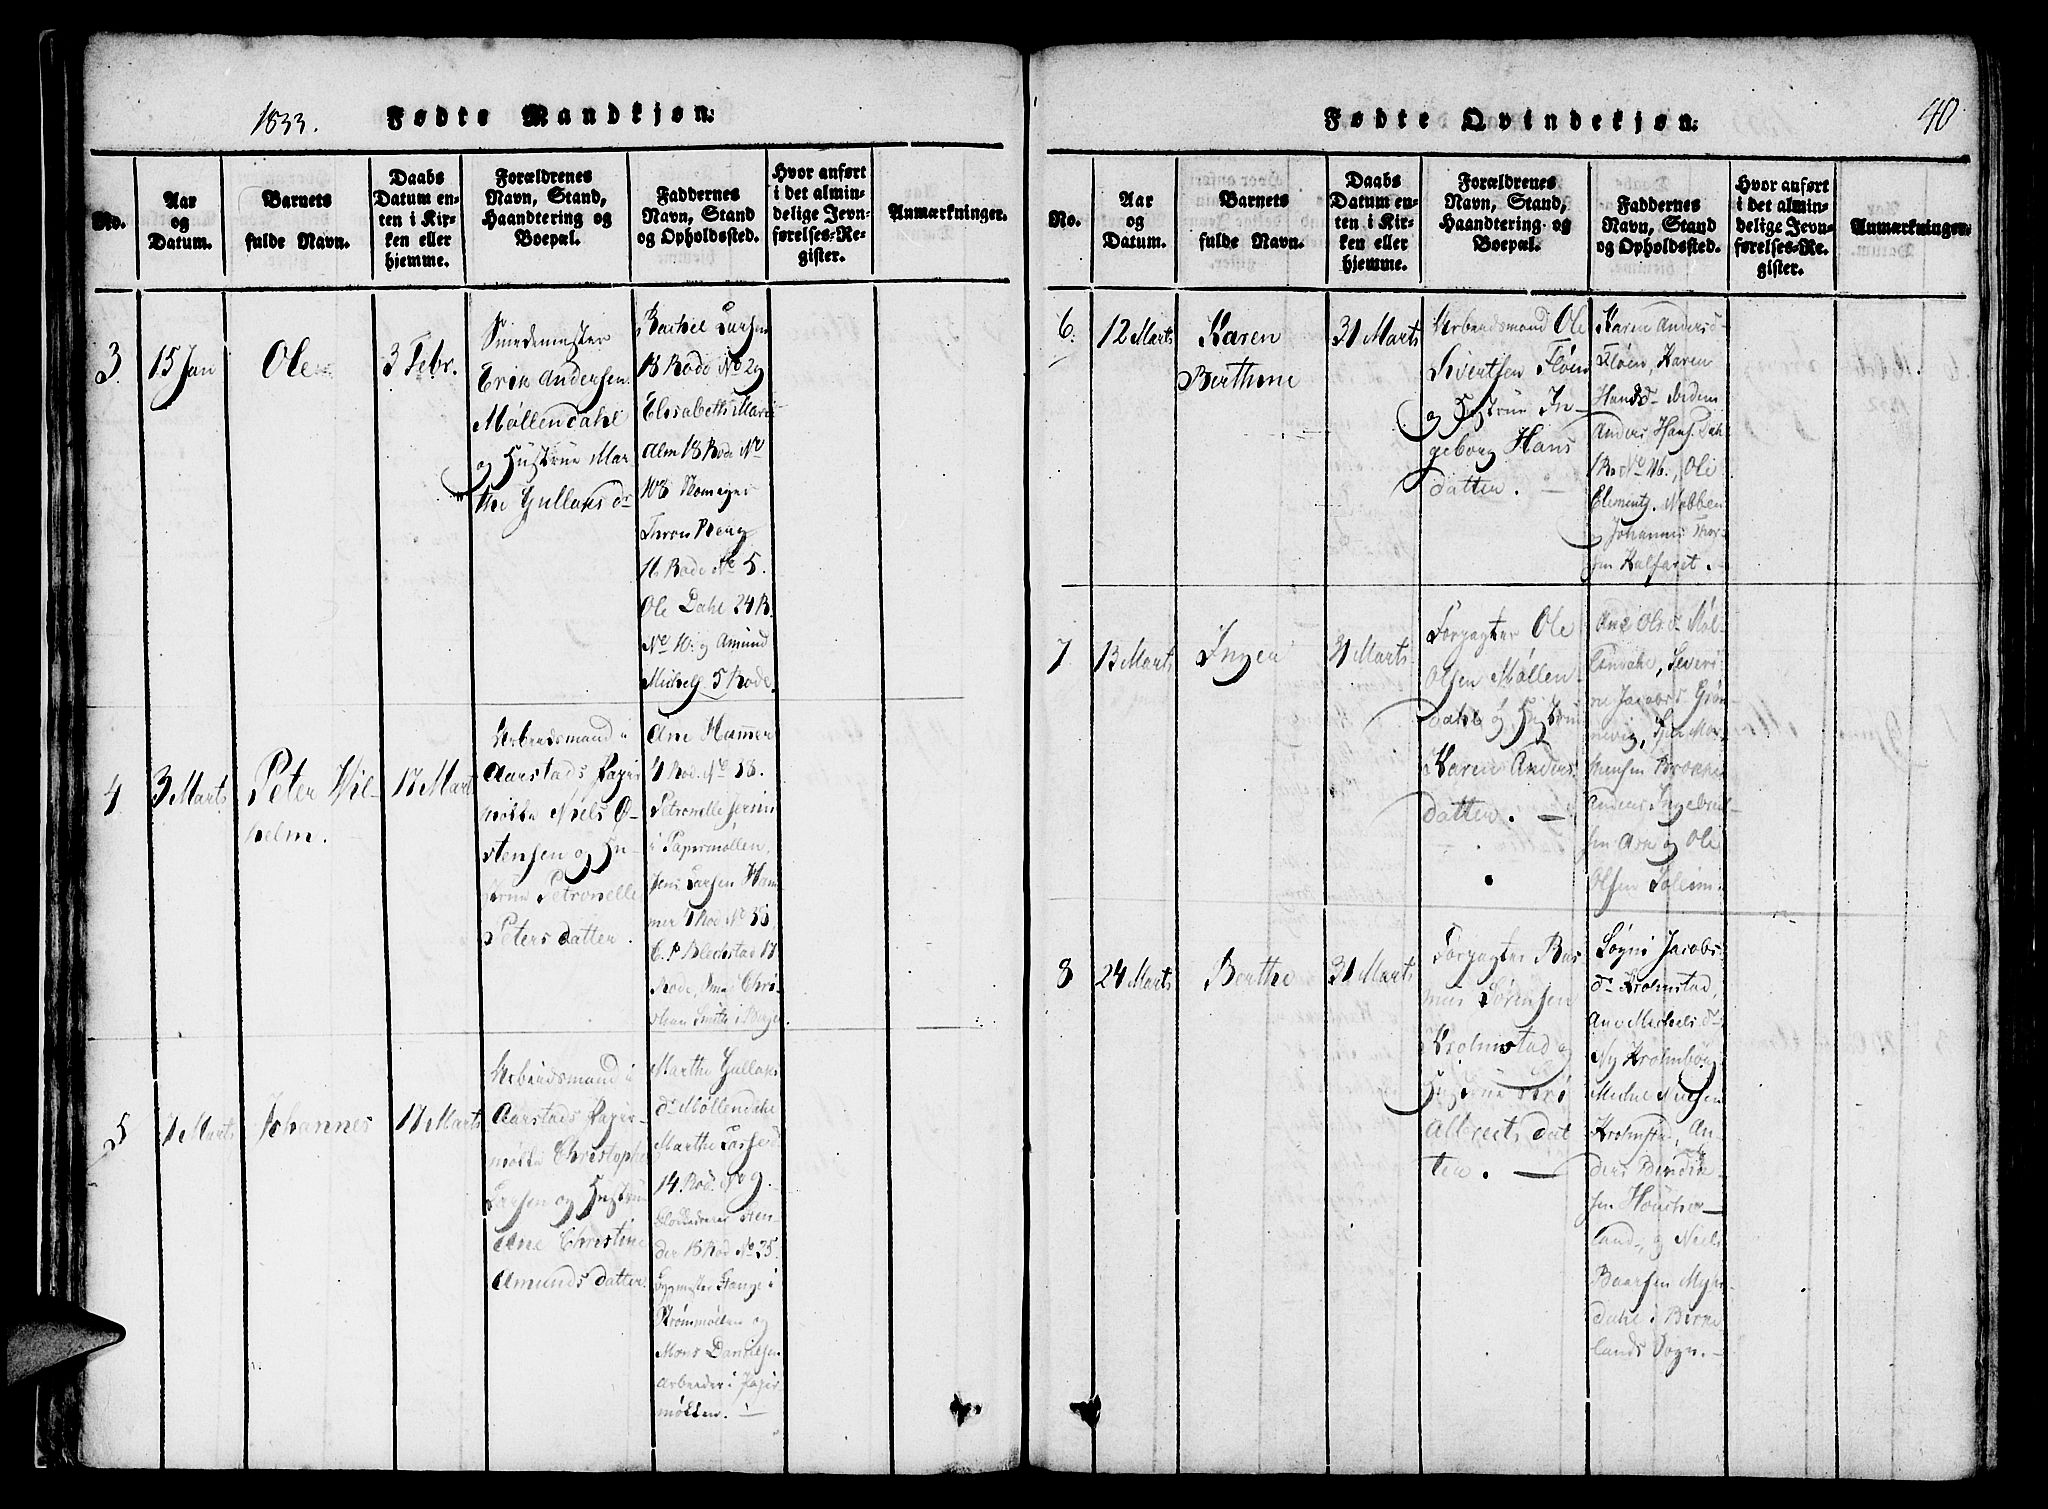 1833.
Fødte Mandkjøn:
No.
Aar
og
Datum.
Barnets
fulde Navn.
Daabs
Datum en-
ten i Kir-
ken eller
hjemme.
Forældrenes
Navn, Stand,
Haandtering og
Boepæl.
Faddernes
Navn, Stand
og Opholdssted.
Hvor anført
i det almin-
delige Jevn-
førelses-Re-
gister.
Anmærkninger.
3
15 Jan
Ole
3 Febr.
Smedemester
Erik Andersen
Møllendahl
og Hustrue Mar
the Gullaks d.
Rachel Larsen
18 Rode No 29
Elisabeth Marie
Alm 18 Rode No
108
16 Rode No 5.
Ole Dahl 24 R.
No 10. og Amund
Michels. 5 Rode.
4
3 Marts
Peter Wil-
helm.
17 Marts
Arbeidsmand i
Aarstads Papir
mølle Niels
stensen og Hu-
strue Petronelle
Peters datter.
Ane Hammer
4 Rod. No 58.
Petronelle
i Papirmøllen,
Jens Larsen Ham
mer 4 Rod No 58
Rode, Smed Chri-
stian Smith i Bergen
5
7 Marts
Johannes
17 Marts
Arbeidsmand i
Aarstads Papir-
mølle Christopher
Larsen og Hustrue
Ane Christine
Amunds datter.
Marthe Gullaks
d. Møllendahl
Marthe Larsen
14 Rod. No 9.
der 18 Rod No 25.
Bygmester Stange i
Strømmøllen og
Mons Danielsen
Arbeider i Papir
møllen.
Fødte Qvindekjøn:
40
No.
Aar
og
Datum.
Barnets
fulde Navn.
Daabs
Datum en-
ten i Kir-
ken eller
hjemme.
Forældrenes
Navn, Stand,
Haandtering og
Boepæl.
Faddernes
Navn, Stand
og Opholdssted.
Hvor anført
i det almin-
delige Jevn-
førelses-Re-
gister.
Anmærkninger.
6.
12 Marts
Karen
Berthine
31 Marts
Arbeidsmand Ole
Sivertsen Fløen
og Hustrue In-
geborg Hans
datter.
Karen Anders d.
Fløen, Karen
Hans d. ibidem
Anders Hans. Dahl
No 16, Ole
Clements. Nebben
og Johannes Thor-
sen Kalfaret.
7
13 Marts
Inger
31 Marts
Forpagter Ole
Olsen Møllen
dahl og Hustrue
Karen Anders
datter.
Ane Ols d. Møl-
lendahl, Severi-
ne Jacobs d. Grøn
nevig,
Anders Ingebrigt-
sen Ask og Ole
Olsen Solheim.
8
24 Marts
Berthe
31 Marts
Forpagter Ras
mus Sørensen
Krohnstad og
Hustrue
Albrects dat
ter.
Søgni Jacobs
d. Krohnstad,
Ane Michels d.
Ny Krohnborg
Nielsen
Krohnstad, An-
ders Bendik-
sen
land, og Niels
Baarsen Myr-
dahl i Birke-
lands Sogn.